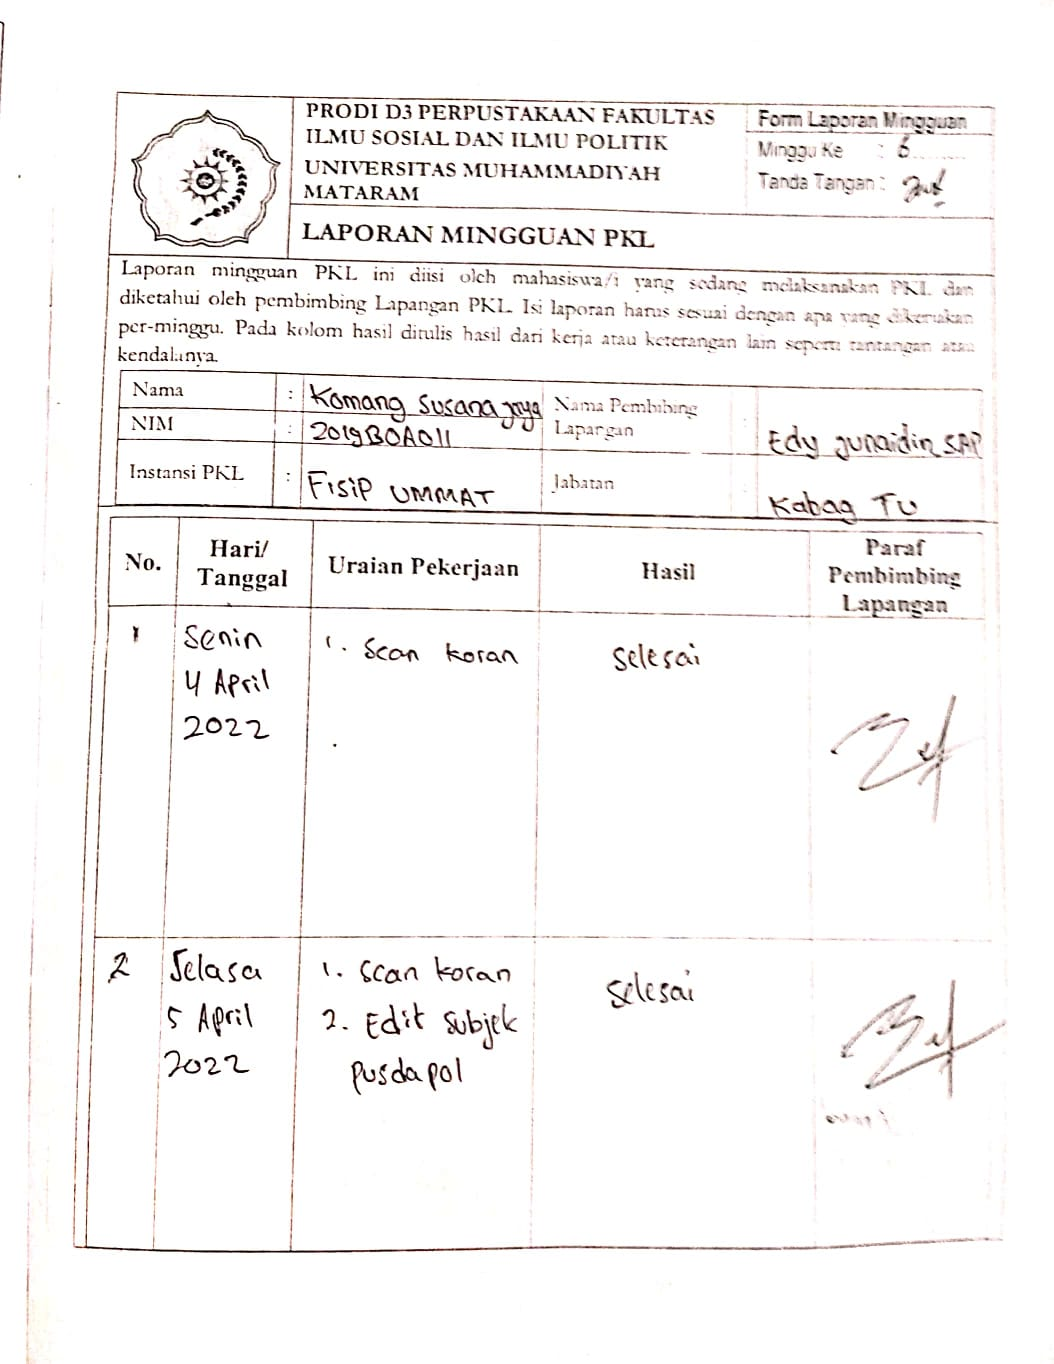 PRODI D3 PERPUSTAKAAN FAKULTAS
ILMU SOSIAL DAN ILMU POLITIK
UNIVERSITAS MUHAMMADIYAH
MATARAM
Form Laporan Mingguan
Minggu Ke : 6
Tanda Tangan :
LAPORAN MINGGUAN PKL
Laporan mingguan PKL ini diisi oleh mahasiswa/i yang sedang melaksanakan PKL dan
diketahui oleh pembimbing Lapangan PKL. Isi laporan harus sesuai dengan apa yang dikerjakan
per-minggu. Pada kolom hasil ditulis hasil dari kerja atau keterangan lain seperti tantangan atau
kendalanya.
Nama : Komang Susana Jaya
NIM : 2019B0A011
Nama Pembibing
Lapangan : Edy Junaidin SAP
Instansi PKL : Fisip UMMAT
Jabatan : Kabag TU
No.
Hari/
Tanggal
Uraian Pekerjaan
Hasil
Paraf
Pembimbing
Lapangan
1
Senin
4 April
2022
1. Scan koran
Selesai
2
Selasa
5 April
2022
1. Scan koran
2. Edit Subjek
pusdapol
Selesai